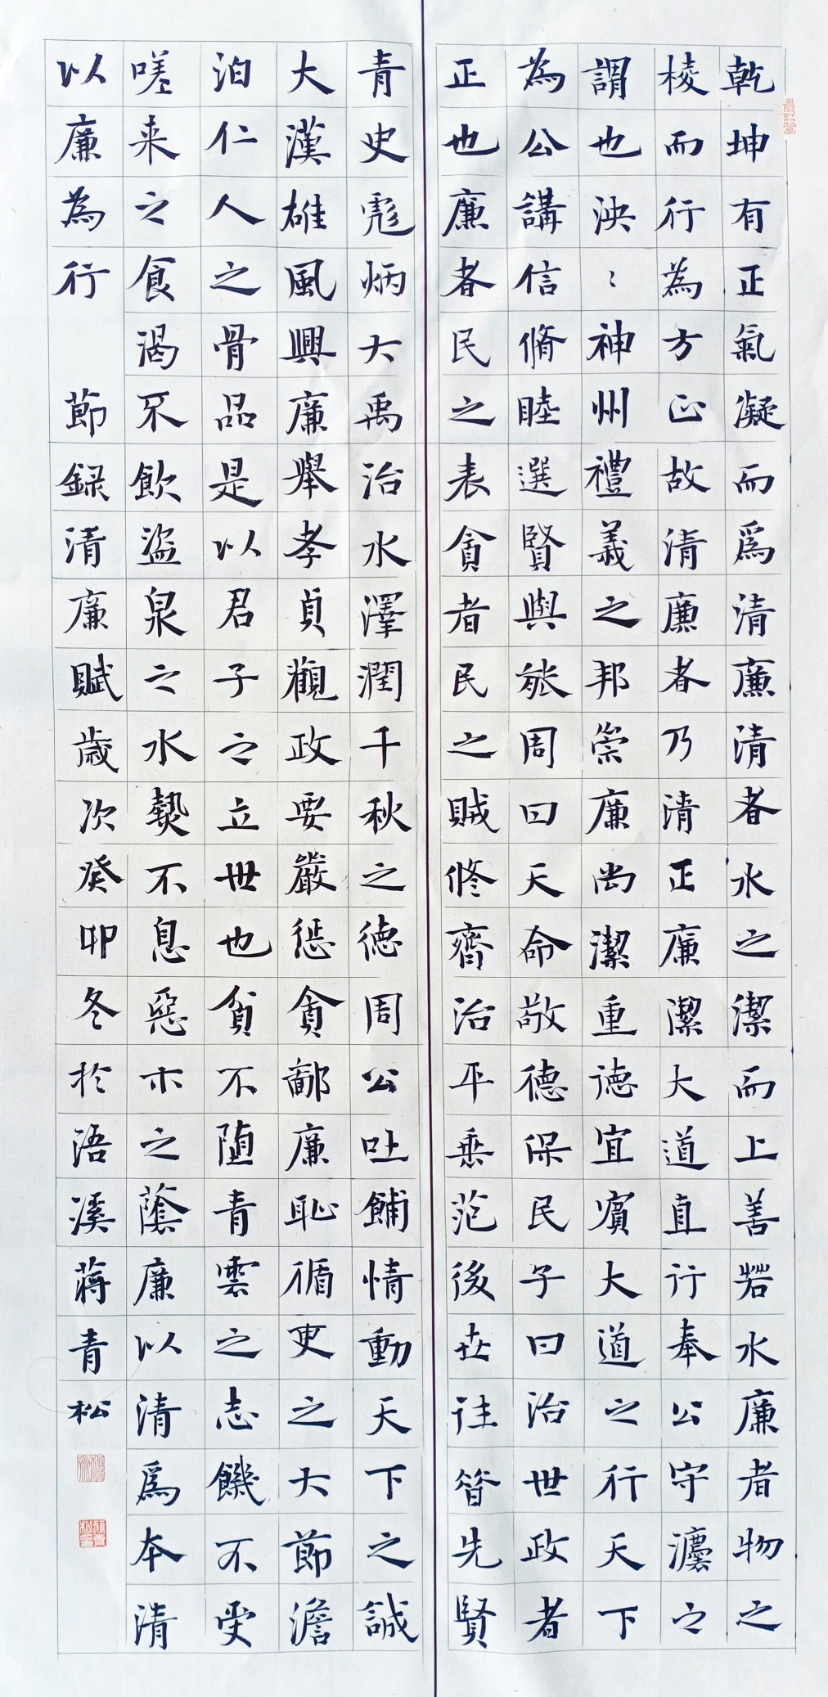 乾坤有正氣凝而為清廉清者水之潔而上善若水廉者物之
棱而行為方正故清廉者乃清正廉潔大道直行奉公守灋之
謂也泱〻神州禮義之邦崇廉尚潔重德宜賓大道之行天下
為公講信脩睦選賢與能周曰天命敬德保民子曰治世政者
正也廉者民之表貪者民之賊修齊治平垂范後世往昝先賢
青史彪炳大禹治水澤潤千秋之德周公吐餔情動天下之誠
大漢雄風興廉舉孝貞觀政要嚴懲貪鄙廉恥循吏之大節澹
泊仁人之骨品是以君子之立世也貧不随青雲之志饑不受
嗟来之食渴不飲盜泉之水熱不息惡木之蔭廉以清為本清
以廉為行
節錄清廉賦歲次癸卯冬於浯溪蔣青松